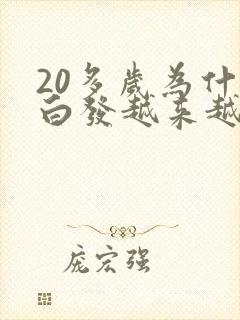 20多歲為什
白發越來越
庞宏强